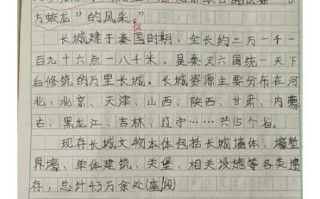 方蛟龙"的风采。"
长城建于秦国时期，全长约二万一千一
百九十六点一八千米，是秦灭六国统一天下
后修筑的万里长城。长城资源主要分布在河
北、北京、天津、山西、陕西、甘肃、内蒙
古、黑龙江、吉林、辽宁……共15个省。
现存长城文物本体包括长城墙体、壕堑
界壕、单体建筑、关堡、相关设施等各类遗
存，总计43万余处（座/段）